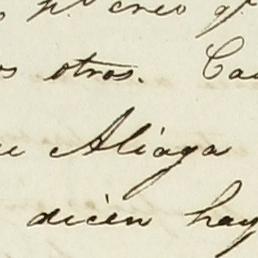 creo q
otros. Ca
Aliaga
dicen hay